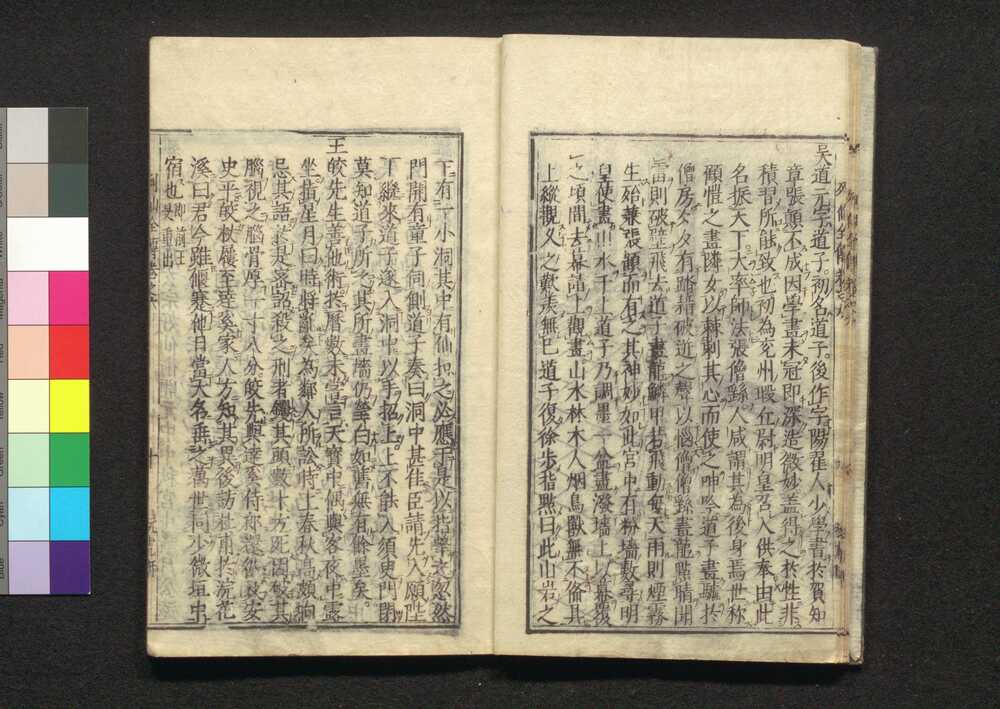 吳道元字道子初名道子後作字陽翟人少學書於賀知
章張顛不成因學畫未冠即深造微妙盖得之於性非
積習所能致也初為兖州瑕丘尉明皇召入供奉由此
名振天下大率師法張僧繇人咸謂其為後身焉世稱
顧愷之畫隣女以棘刺其心而使之呻吟道子畫驢於
僧房一夕有踏藉破迸之聲以惱僧僧繇畫龍點睛聞
雷則破壁飛去道子畫龍鱗甲若飛動每天雨則煙霧
生殆兼張顧而有之其神妙如此宮中有粉墻數尋明
皇使畫山水于上道子乃調墨一盆盡潑墻上以幕覆
之頃間去幕請上觀畫山水林木人烟鳥獸無不俻具
上縱觀久之歎羨無已道子復徐步指點曰此山岩之
下有一小洞其中有仙扣之必應于是以指擊之忽然
門開有童子伺側道子奏曰洞中甚佳臣請先入願陛
下繼來道子遂入洞中以手招上上不能入須臾門閉
莫知道子所之其所畫墻仍瑩白如舊無有餘墨矣
王
皎先生善他術於曆數未嘗言天寶中偶與客夜中露
坐指星月曰時將亂矣為鄰人所訟時上春秋高頗拘
忌其語於是密詔殺之刑者钁其頭數十方死因破其
腦視之腦骨厚一寸八分皎先與達奚侍郎還徃及安
史平皎杖屨至達奚家人方知其異後訪杜甫於浣花
溪曰君今雖偃蹇他日當大名垂之萬世同少微垣中
宿也